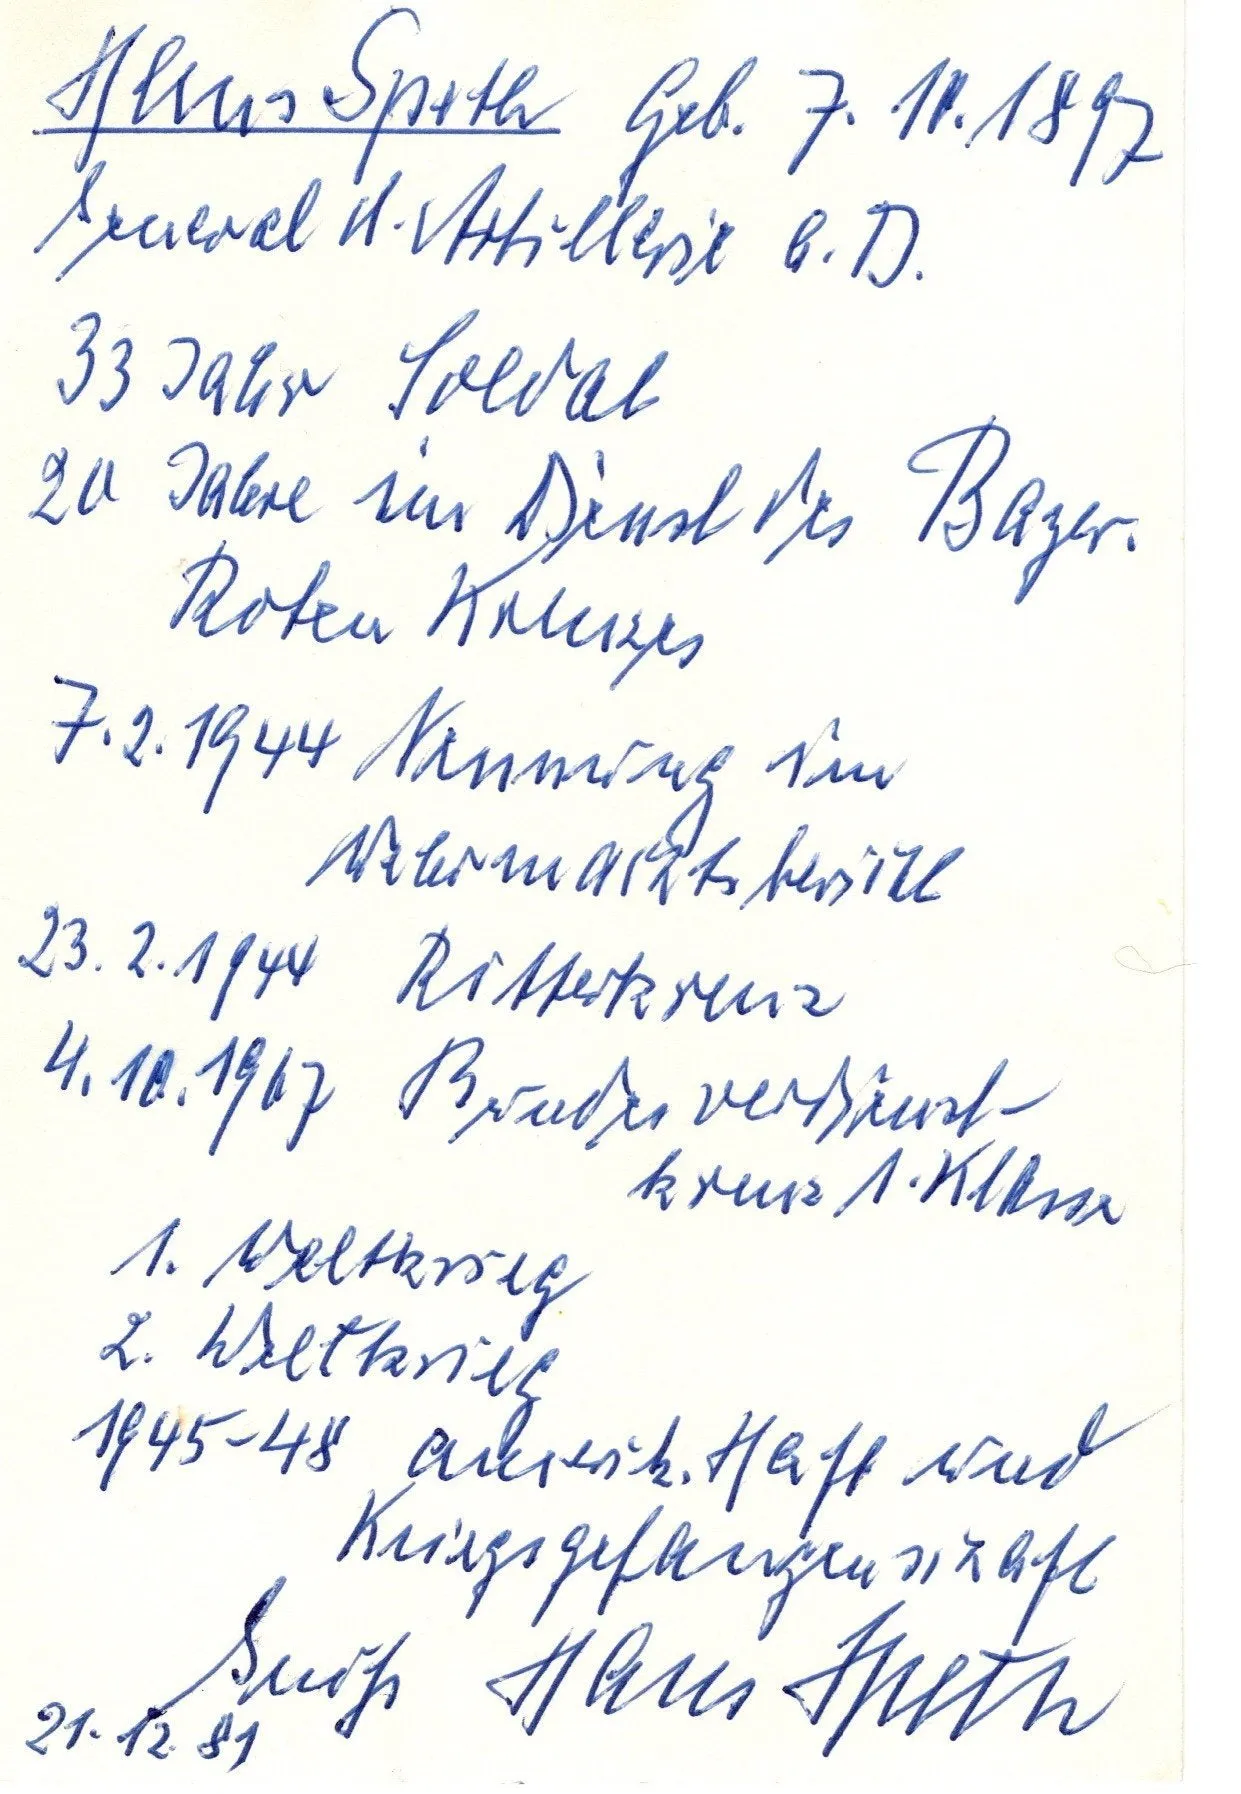 Hans Speth Geb. 7. 10. 1897
General d. Artillerie a. D.
33 Jahre Soldat
20 Jahre im Dienst des Bayer.
Roten Kreuzes
7. 2. 1944 Nennung im
Wehrmachtsbericht
23. 2. 1944 Ritterkreuz
4. 10. 1967 Bundesverdienst-
kreuz 1. Klasse
1. Weltkrieg
2. Weltkrieg
1945-48 amerik. Haft und
Kriegsgefangenschaft
Gruß Hans Speth
21. 12. 81